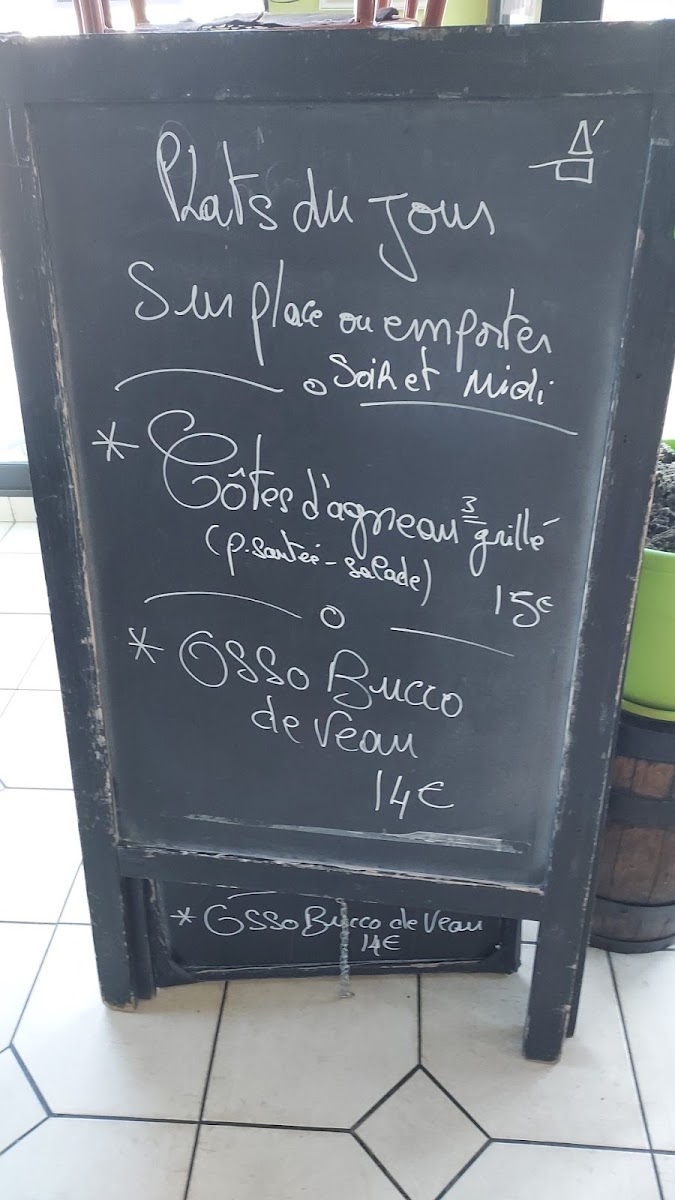 Plats du jour
Sur place ou emporter
Soir et Midi
* Côtes d'agneau 3 grillé
(p. sautée - salade)
15€
* Osso Bucco
de Veau
14€
* Osso Bucco de Veau
14€